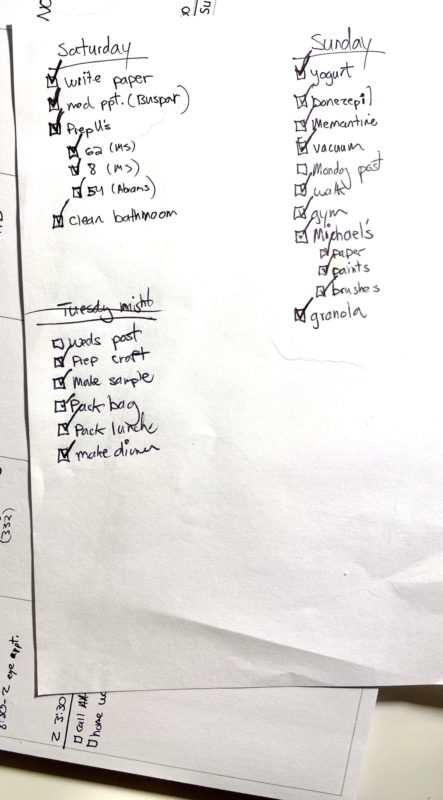 Saturday
write paper
med ppt. (Buspar)
PrepU's
62 (MS)
8 (MS)
54 (Abrams)
clean bathroom
Sunday
yogurt
Donezepil
Memantine
vacuum
Monday post
walk
gym
Michael's
paper
paints
brushes
granola
Tuesday night
Weds post
Prep craft
Make sample
Pack bag
Pack lunch
make dinner
(332)
8:30-2 eye appt.
2 3:30
call
home